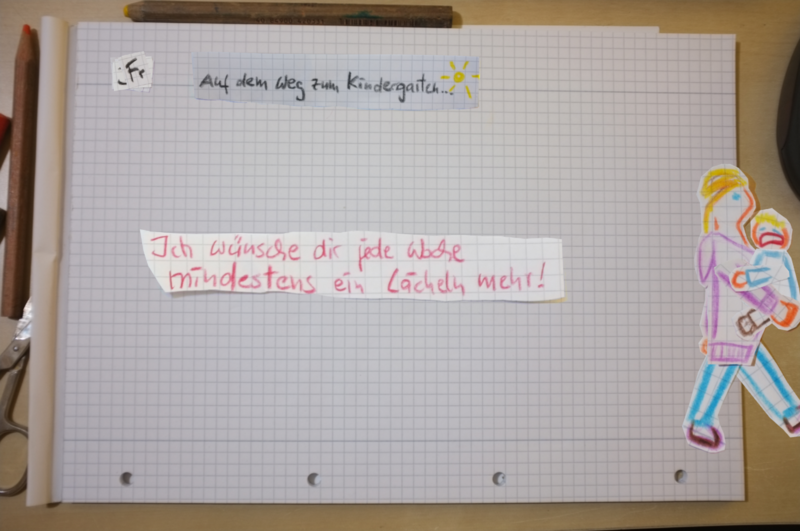 :Fr
Auf dem Weg zum Kindergarten...
Ich wünsche dir jede Woche
mindestens ein Lächeln mehr!